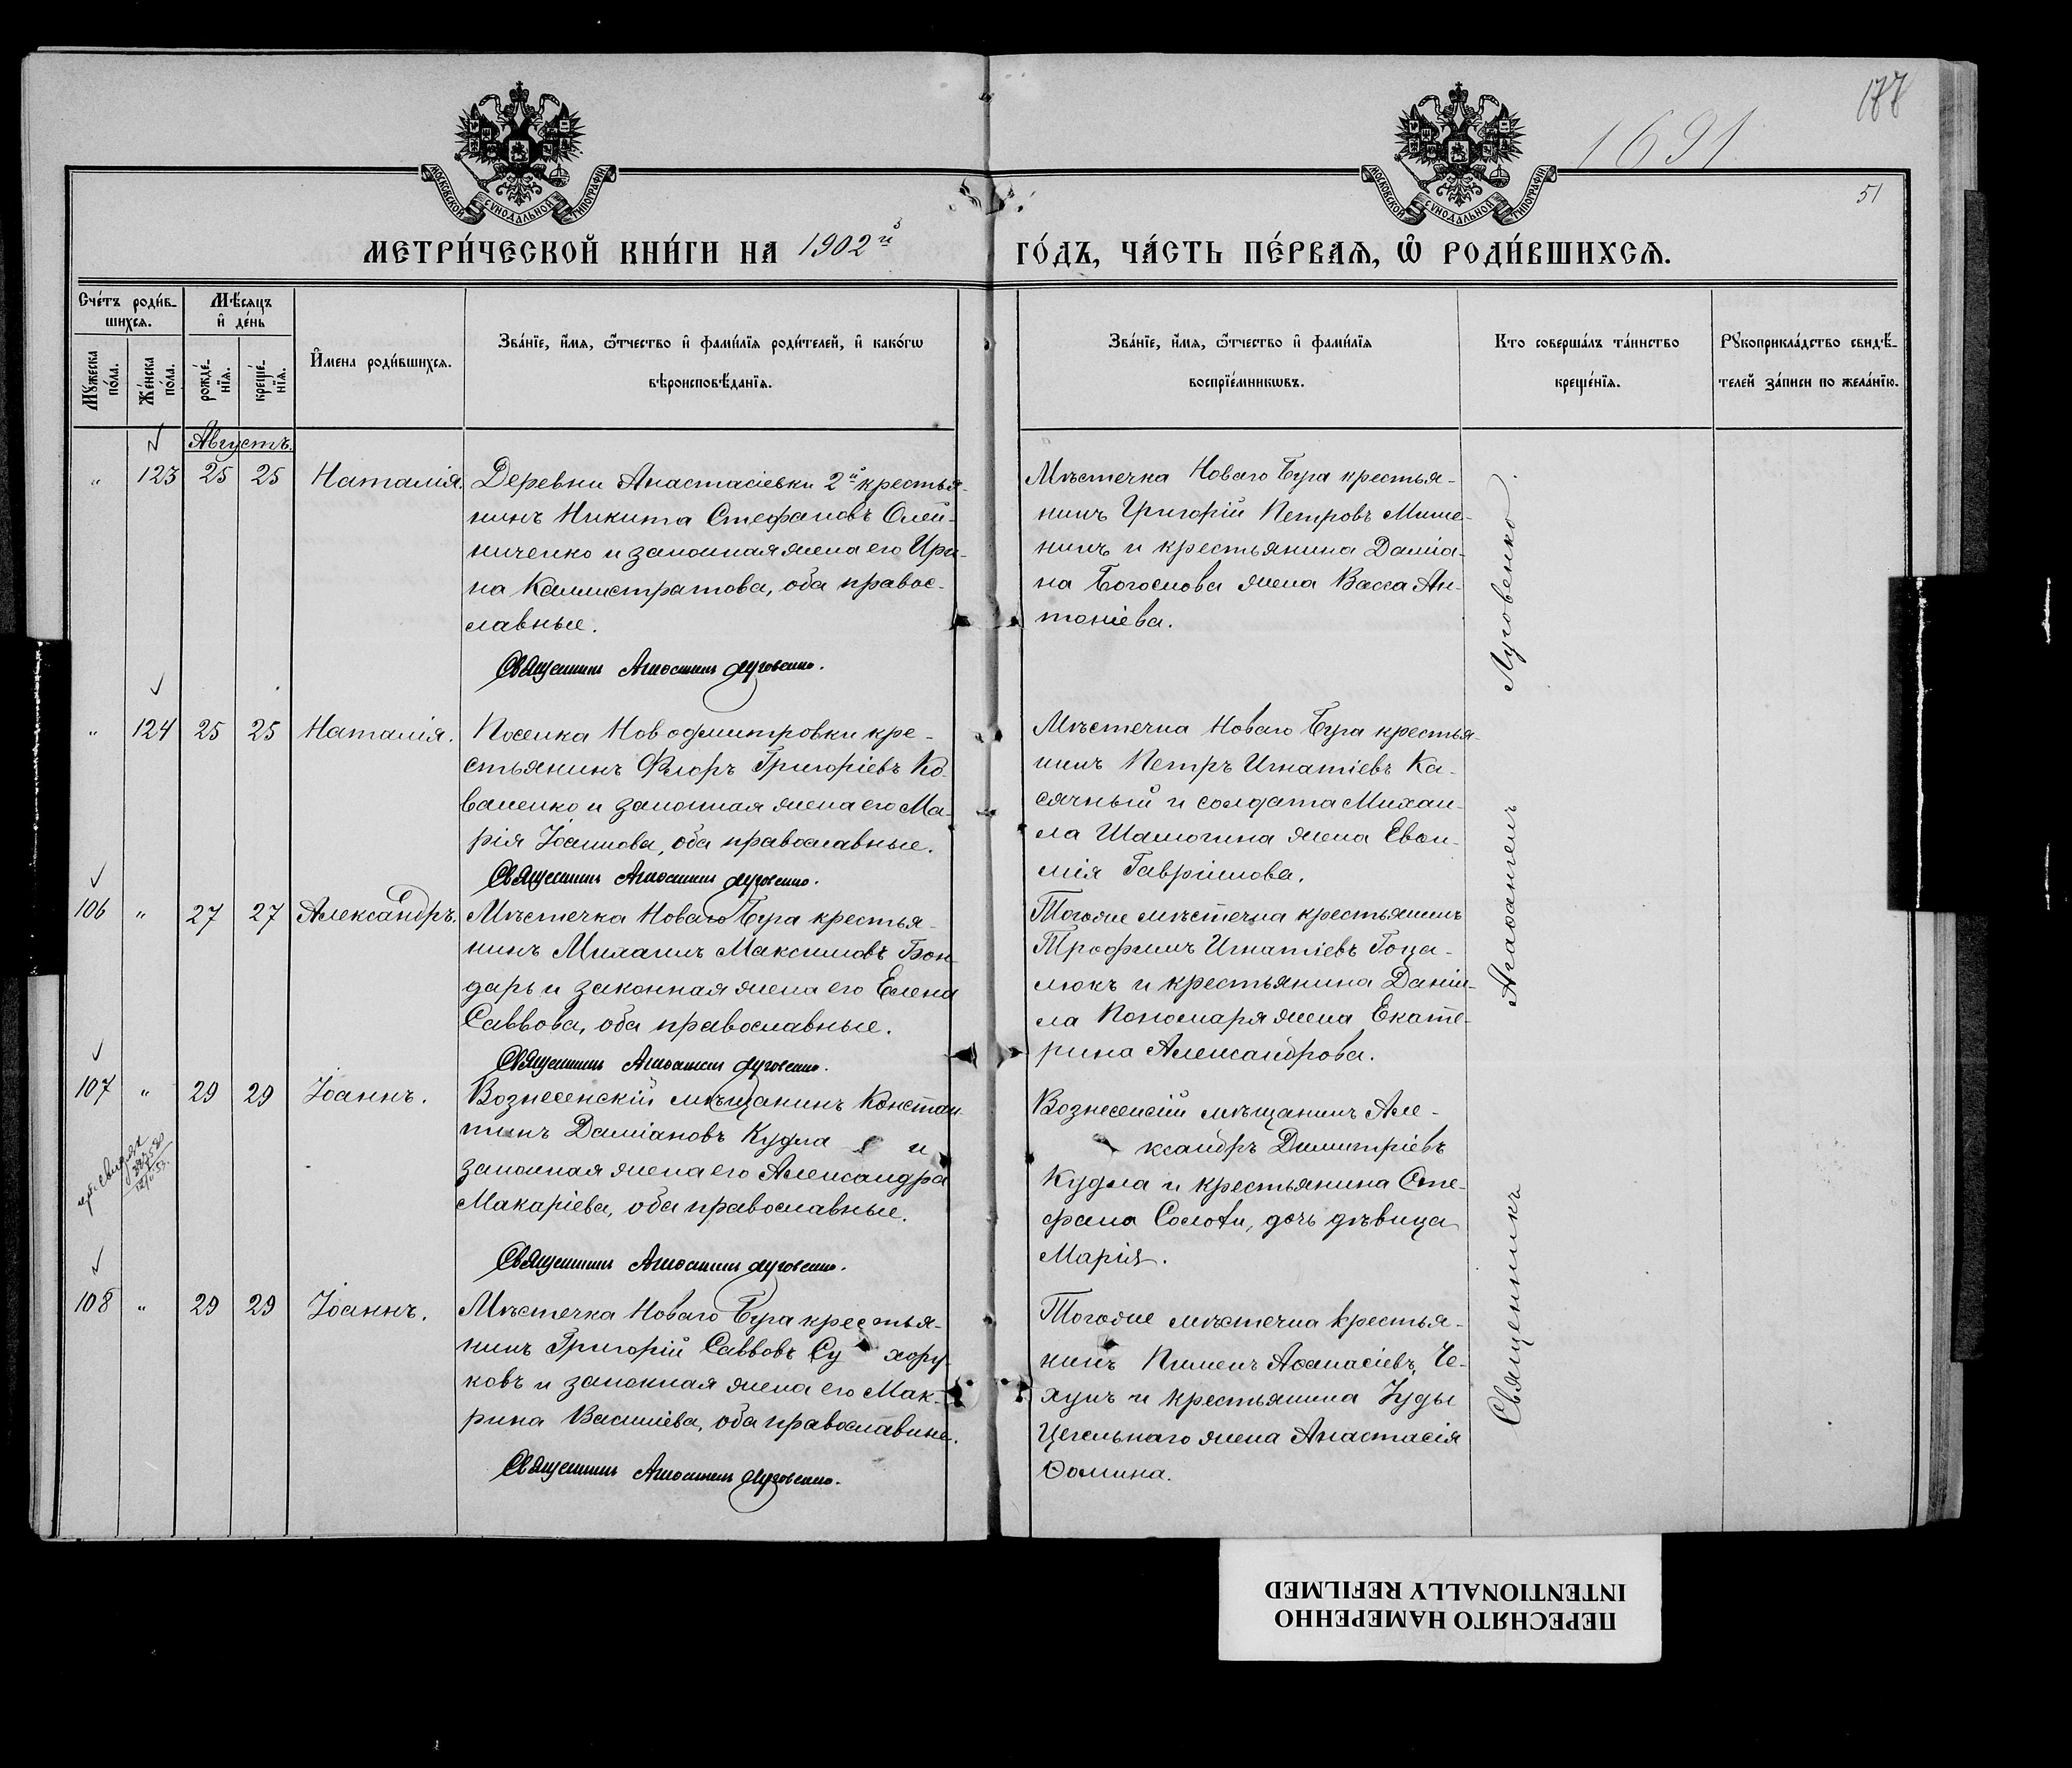 177
1691
51
МОСКОВСКОЙ СѴНОДАЛЬНОЙ ТИПОГРАФІИ
МОСКОВСКОЙ СѴНОДАЛЬНОЙ ТИПОГРАФІИ
МЕТРИ́ЧЕСКОЙ КНИ́ГИ НА 1902й
ГО́ДЪ, ЧА́СТЬ ПЕ́РВАѦ, Ѽ РОДИ́ВШИХСѦ.
Сче́тъ роди́в-
шихсѧ.
Мꙋ́жеска по́ла.
Же́нска по́ла.
Мѣ́сѧцъ
и҆ де́нь
рожде́-
нїѧ.
креще́-
нїѧ.
И҆мена роди́вшихсѧ.
Зва́нїе, и҆́мѧ, ѻ҆́тчество и҆ фами́лїѧ роди́телей, и҆ како́гѡ
вѣроисповѣ́данїѧ.
Зва́нїе, и҆́мѧ, ѻ҆́тчество и҆ фами́лїѧ
воспрїе́мникѡвъ.
Кто соверша́лъ та́инство
креще́нїѧ.
Рꙋкоприкла́дство свидѣ́-
телей за́писи по жела́нїю.
Августъ.
" 123 25 25 Наталія. Деревни Анастасіевки 2й крестья-
нинъ Никита Стефановъ Олей-
ниченко и законная жена его Ири-
на Каллистратова, оба правос-
лавные.
Священникъ Агаѳангелъ Луговенко.
Мѣстечка Новаго Буга крестья-
нинъ Григорій Петровъ Мише-
нинъ и крестьянина Даміа-
на Богослова жена Васса Ан-
тоніева.
" 124 25 25 Наталія. Поселка Новодмитровки кре-
стьянинъ Флоръ Григоріевъ Ко-
валенко и законная жена его Ма-
рія Іоаннова, оба православные.
Священникъ Агаѳангелъ Луговенко.
Мѣстечка Новаго Буга крестья-
нинъ Петръ Игнатіевъ Ка-
сячный и солдата Михаи-
ла Шамогина жена Евѳи-
мія Гавріилова.
106 " 27 27 Александръ. Мѣстечка Новаго Буга крестья-
нинъ Михаилъ Максимовъ Бон-
дарь и законная жена его Елена
Саввова, оба православные.
Священникъ Агаѳангелъ Луговенко.
Тогоже мѣстечка крестьянинъ
Трофимъ Игнатіевъ Гоца-
люкъ и крестьянина Даніи-
ла Пономаря жена Екате-
рина Александрова.
107 " 29 29 Іоаннъ. Вознесенскій мѣщанинъ Констан-
тинъ Даміановъ Кудла и
законная жена его Александра
Макаріева, оба православные.
Священникъ Агаѳангелъ Луговенко.
Вознесенскій мѣщанинъ Але-
ксандръ Димитріевъ
Кудла и крестьянина Сте-
фана Соловья, дочь дѣвица
Марія.
108 " 29 29 Іоаннъ. Мѣстечка Новаго Буга крестья-
нинъ Григорій Саввовъ Сухору-
ковъ и законная жена его Мак-
рина Василіева, оба православные.
Священникъ Агаѳангелъ Луговенко.
Тогоже мѣстечка крестья-
нинъ Пименъ Аѳанасіевъ Че-
хунъ и крестьянина Іуды
Цегельнаго жена Анастасія
Ѳомина.
Священникъ Агаѳангелъ Луговенко.
ПЕРЕСНЯТО НАМЕРЕННО
INTENTIONALLY REFILMED